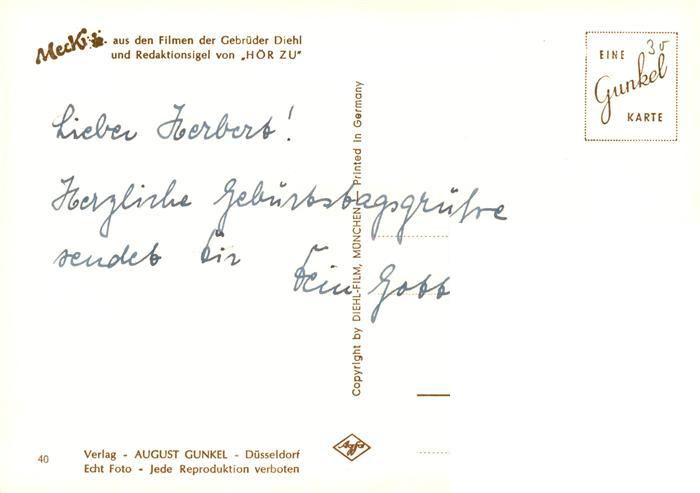 Mecki aus den Filmen der Gebrüder Diehl
und Redaktionsigel von „HÖR ZU"
30
EINE
Gunkel
KARTE
Lieber Herbert!
Herzliche Geburtstagsgrüße
sendet Dir
Dein Gott
Copyright by DIEHL-FILM, MÜNCHEN — Printed in Germany
Agfa
40
Verlag - AUGUST GUNKEL - Düsseldorf
Echt Foto - Jede Reproduktion verboten